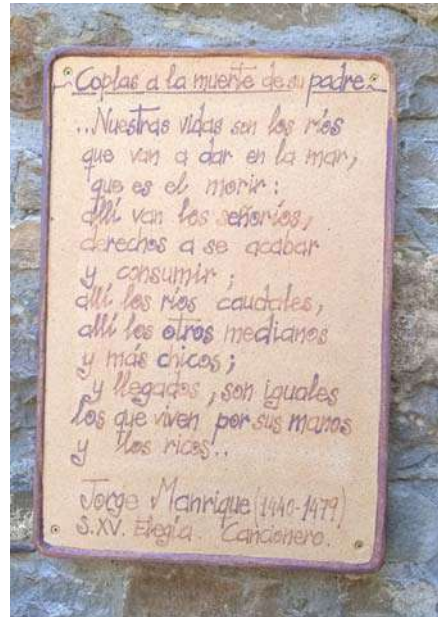 Coplas a la muerte de su padre.
..Nuestras vidas son los ríos
que van a dar en la mar,
que es el morir:
allí van los señoríos,
derechos a se acabar
y consumir;
allí los ríos caudales,
allí los otros medianos
y más chicos;
y llegados, son iguales
los que viven por sus manos
y los ricos..
Jorge Manrique (1440-1479)
S.XV. Elegía. Cancionero.